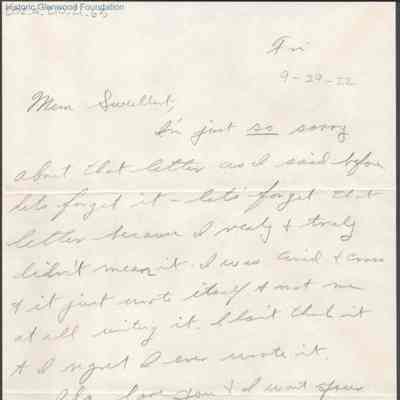 Historic Glenwood Foundation
Fri
9-29-22
Mon Sweetheart,
I'm just so sorry
about that letter as I said before
lets forget it - let's forget that
letter because I realy & truly
didn't mean it. I was tired & cross
& it just wrote itself & not me
at all writing it. I don't think it
& I regret I ever wrote it.
I do love you & I want your